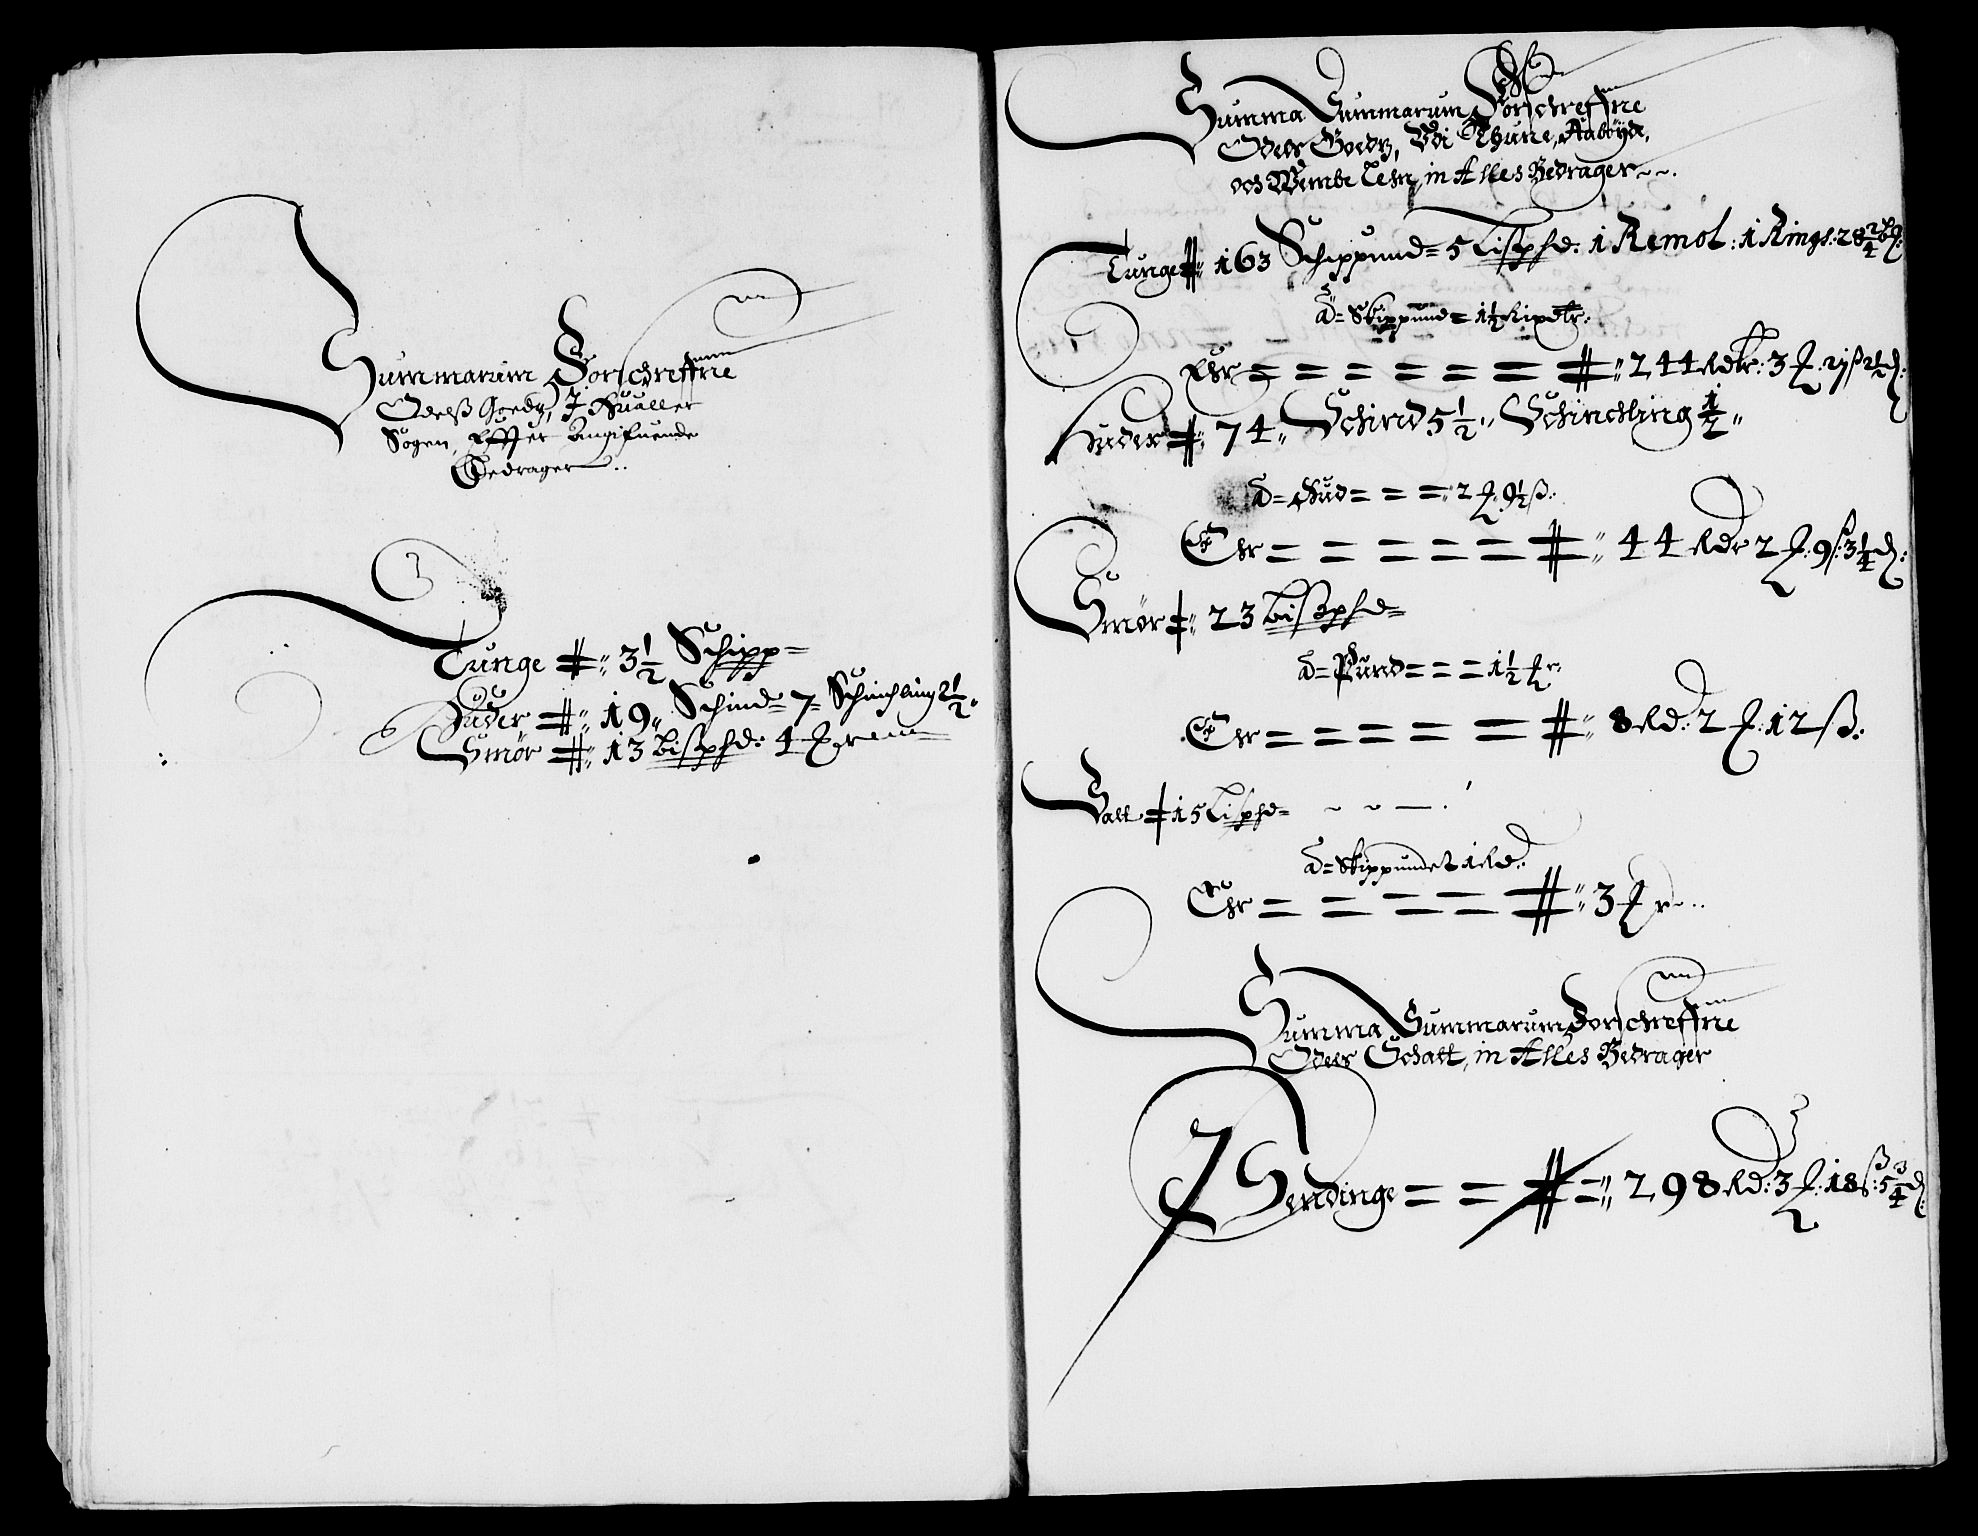 Summarum Forschreffne
Odelß Goedtz, J Hualler
Sogen, Effter Angifuende
Bedrager
Tunge 3½ Schipp
Huder 19 Schind 7 Schinchling 2½
Smør 13 bißphd: 4
Summa Summarum Forschreffne
Odels Goedtz, Vdi Thune, Aabøyd,
och Vembe Lehn, in Alles Bedrager
Tunge 163 Schippund 5 Lißphd: 1 Remol: 1 Rings: 28 2/4
a Skippund 1½ Rixdlr:
Ehr 244 Rdlr: 3 21 ß 2½
Huder 74 Schind 5½ Schinchling ½
a Hud 2 9½ ß
Ehr 44 Rdr 2 9 ß: 3¼
Smør 23 bißphd
a Pund 1½
Ehr 8 Rd: 2 12 ß:
Salt 15 Lißphd
a Skippundet 1 Rd:
Ehr 3
Summa Summarum Forschreffne
Odels Schatt, in Alles Bedrager
J Pendinge 298 Rd: 3 18 ß: 5¾